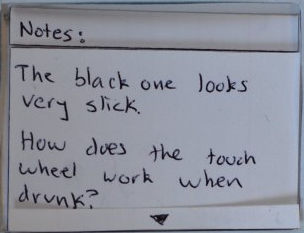 Notes:
The black one looks
very slick.
How does the touch
wheel work when
drunk?